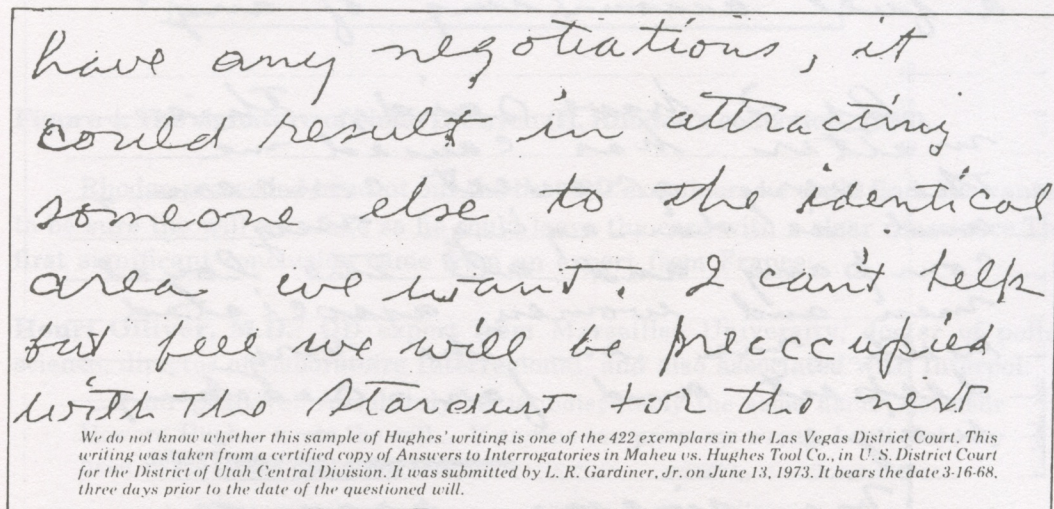 have any negotiations, it
could result in attracting
someone else to the identical
area we want. I can't help
but feel we will be preoccupied
with the Stardust for the next
We do not know whether this sample of Hughes' writing is one of the 422 exemplars in the Las Vegas District Court. This
writing was taken from a certified copy of Answers to Interrogatories in Maheu vs. Hughes Tool Co., in U. S. District Court
for the District of Utah Central Division. It was submitted by L. R. Gardiner, Jr. on June 13, 1973. It bears the date 3-16-68,
three days prior to the date of the questioned will.